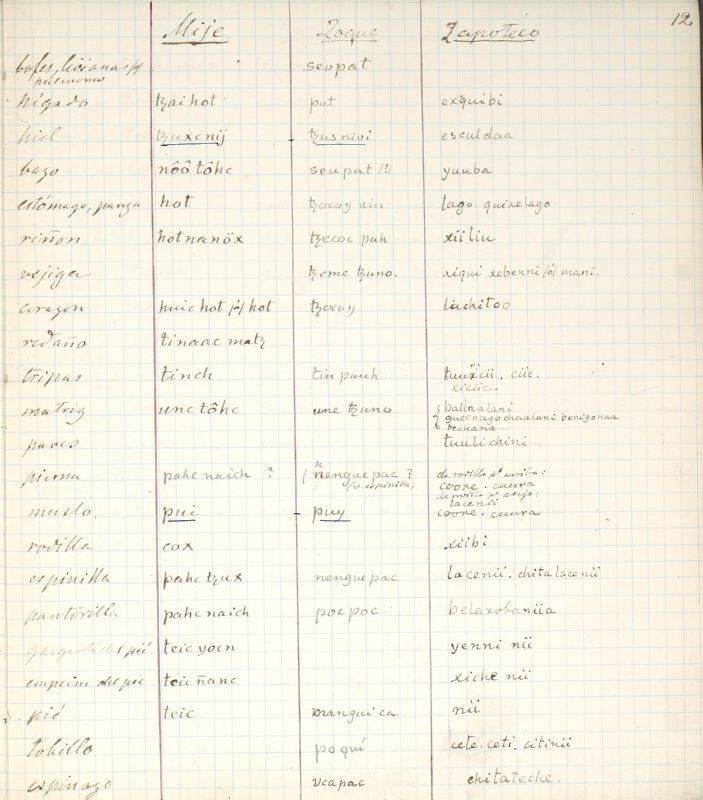 12
Mije Zoque Zapoteco
bofes, livianas /o/ seupat
pulmones
hígado tzaihot pat exquibi
hiel tzuxcnij tzusnivi esculdaa
bazo nôôtôhc seupat (?) yuuba
estómago, panza hot tzocoy lago. quixelago
riñon hotnanöx tzecoc pah xiiliu
vejiga tzeme tzuno. xiqui xebenni /o/ mani.
corazon huic hot /o/ hot tzocoy lachitoo
redaño tinaac matz
tripas tinch tin puuh tuuxcii. cüe.
xicüc.
matriz unc tôhc une tzuno ballaalani
quecnagochaalani benigonaa
bechana
pares tuulichini
pierna pahc naich ? nenguepac ? de rodilla pª arriba:
(v. espinilla) cooxe. cuura
de rodilla pª abajo:
lacenii
muslo. pui puy cooxe. cuura
rodilla cox xiibi
espinilla pahc tzux nengue pac lacenii. chitalacenii
pantorilla pahc naich poc poc belaxobaniia
garganta del pié teic yocn yenni nii
empeine del pie teic ñanc xiche nii
pié teic mangui ca nii
tobillo poquí cete. ceti. citinii
espinazo vcapac chitateche.